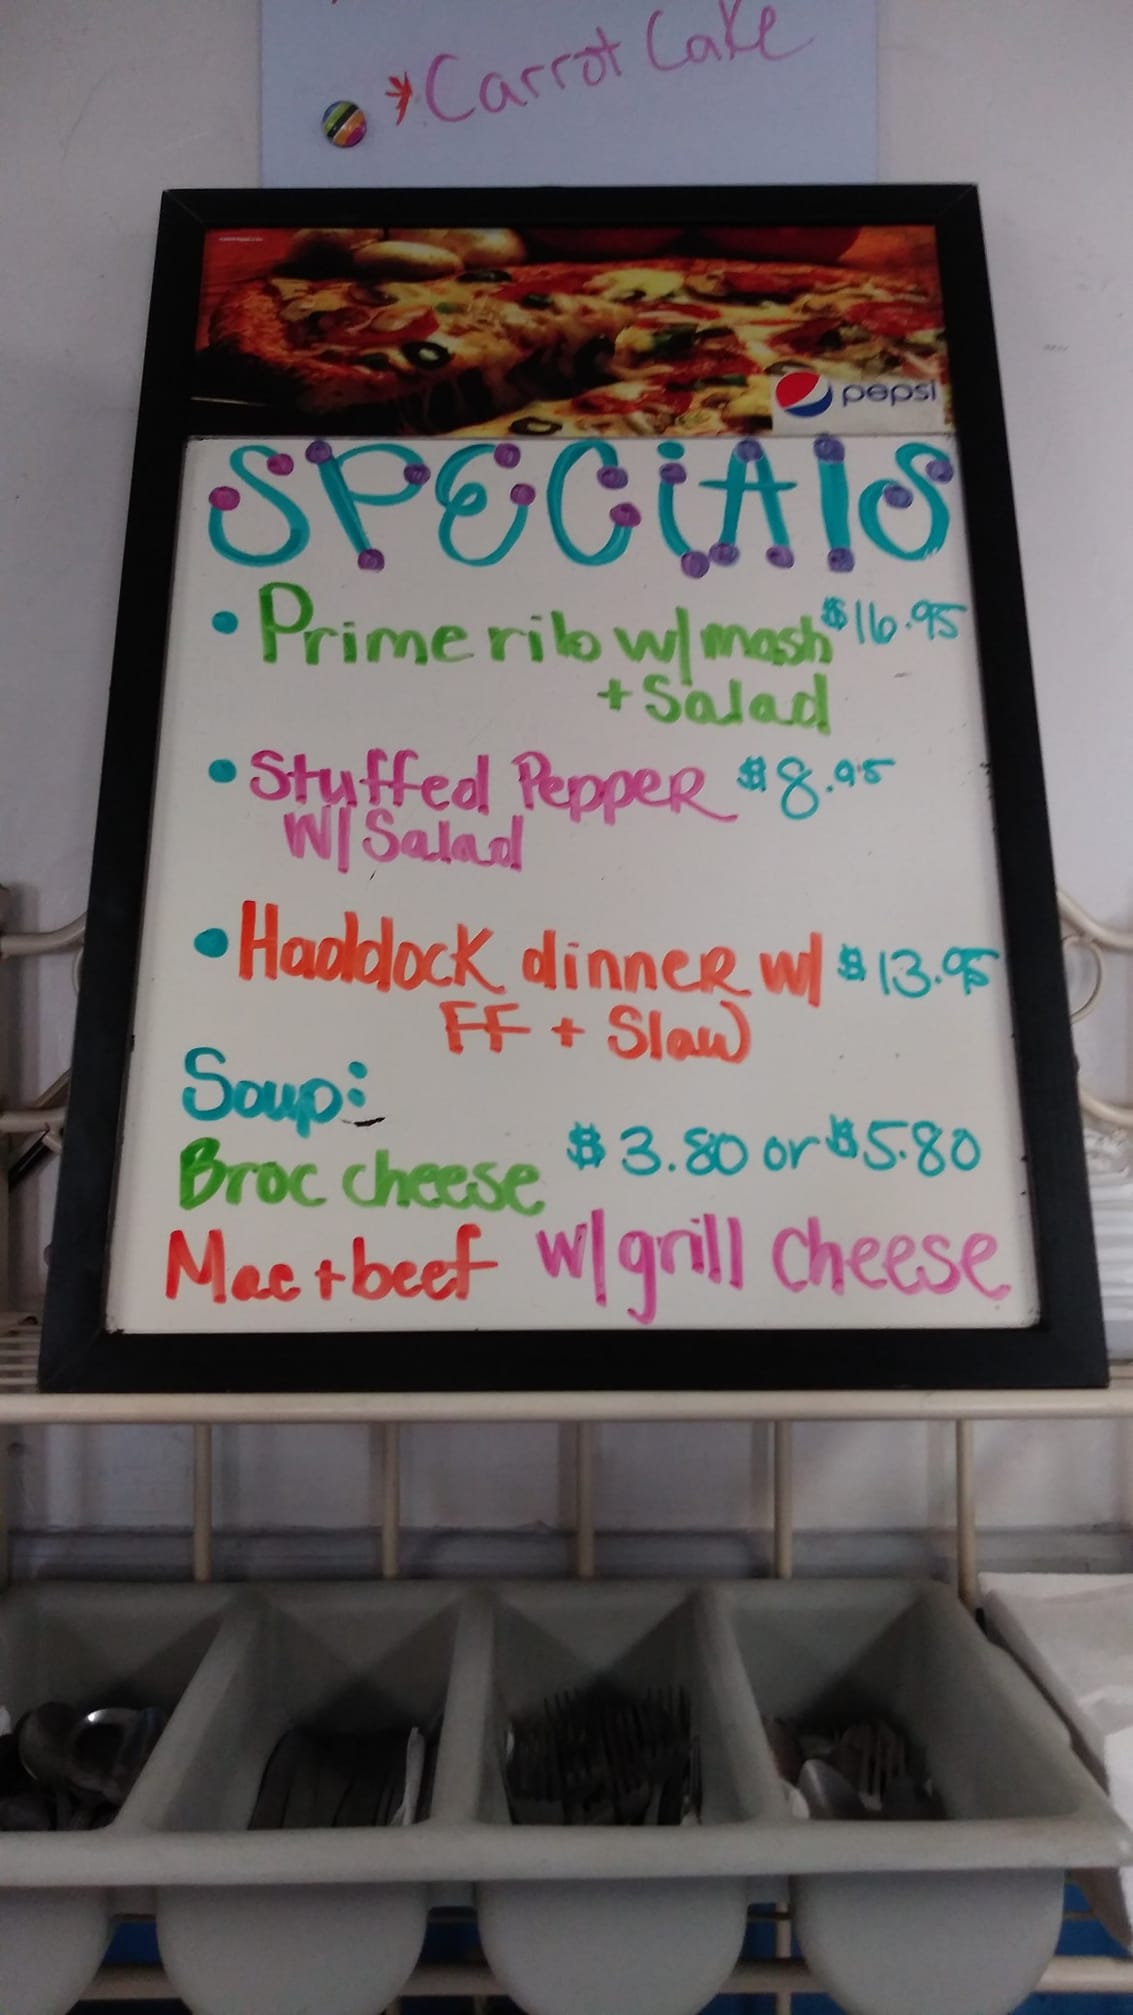 *Carrot Cake
pepsi
SPECiAlS
• Prime rib w/ mash $16.95
+ Salad
• Stuffed Pepper $8.95
W/ Salad
• Haddock dinner w/ $13.95
FF + Slaw
Soup:
Broc cheese $3.80 or $5.80
Mac + beef w/ grill cheese